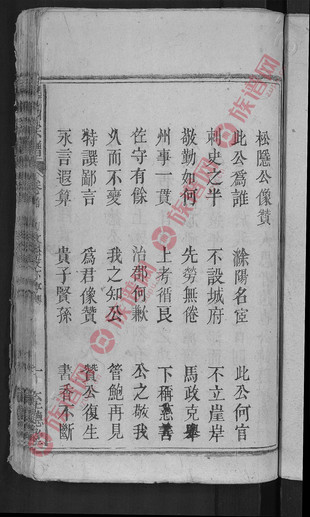 松隱公像贊
此公爲誰 滁陽名宦 此公何官
刺史之半 不設城府 不立崖岸
敬勤如何 先勞無倦 馬政克舉
州事一貫 上考循良 下稱慈善
佐守有餘 治郡何歉 公之敬我
久而不変 我之知公 管鮑再見
特譔鄙言 爲君像贊 贊公復生
永言遐算 貴子賢孫 書香不斷
族譜网